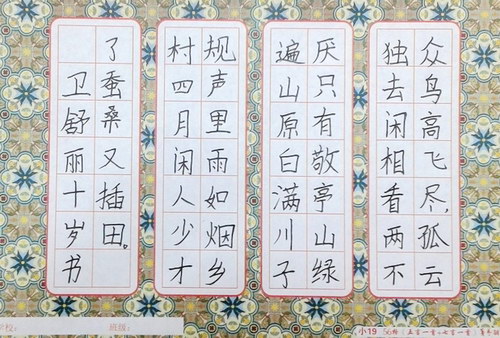 众鸟高飞尽,孤云
独去闲相看两不
厌只有敬亭山绿
遍山原白满川子
规声里雨如烟乡
村四月闲人少才
了蚕桑又插田。
卫舒丽十岁书
校:
班级:
小19
五言一首+七言一首